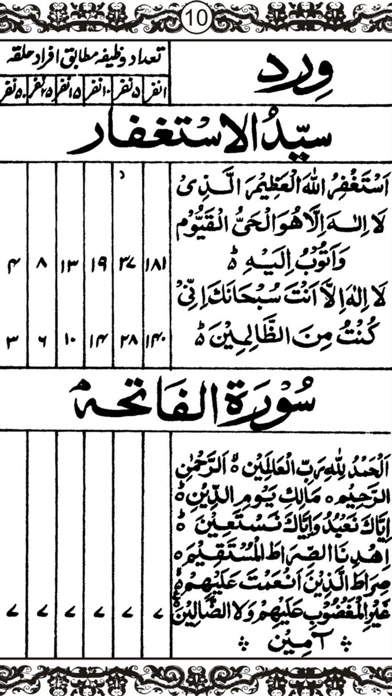 10
ورد
تعداد وظیفہ مطابق افراد حلقہ
۱نفر ۵نفر ۱۰نفر ۱۵نفر ۲۵نفر ۵۰نفر
سیّدُ الاستغفار
اَسْتَغْفِرُ اللہَ الْعَظِیْمَ الَّذِیْ
لَا اِلٰہَ اِلَّا ھُوَ الْحَیُّ الْقَیُّوْمُ
وَاَتُوْبُ اِلَیْہِ ۱۸۱ ۳۷ ۱۹ ۱۳ ۸ ۴
لَا اِلٰہَ اِلَّا اَنْتَ سُبْحَانَکَ اِنِّیْ
کُنْتُ مِنَ الظَّالِمِیْنَ ۱۴۰ ۲۸ ۱۴ ۱۰ ۶ ۳
سُوْرَۃُ الفَاتحہ
اَلْحَمْدُ لِلہِ رَبِّ الْعَالَمِیْنَ اَلرَّحْمٰنِ
الرَّحِیْمِ مَالِکِ یَوْمِ الدِّیْنِ
اِیَّاکَ نَعْبُدُ وَاِیَّاکَ نَسْتَعِیْنُ
اِھْدِنَا الصِّرَاطَ الْمُسْتَقِیْمَ
صِرَاطَ الَّذِیْنَ اَنْعَمْتَ عَلَیْھِمْ
غَیْرِ الْمَغْضُوْبِ عَلَیْھِمْ وَلَا الضَّالِّیْنَ ۷ ۷ ۷ ۷ ۷ ۷
آمِیْن